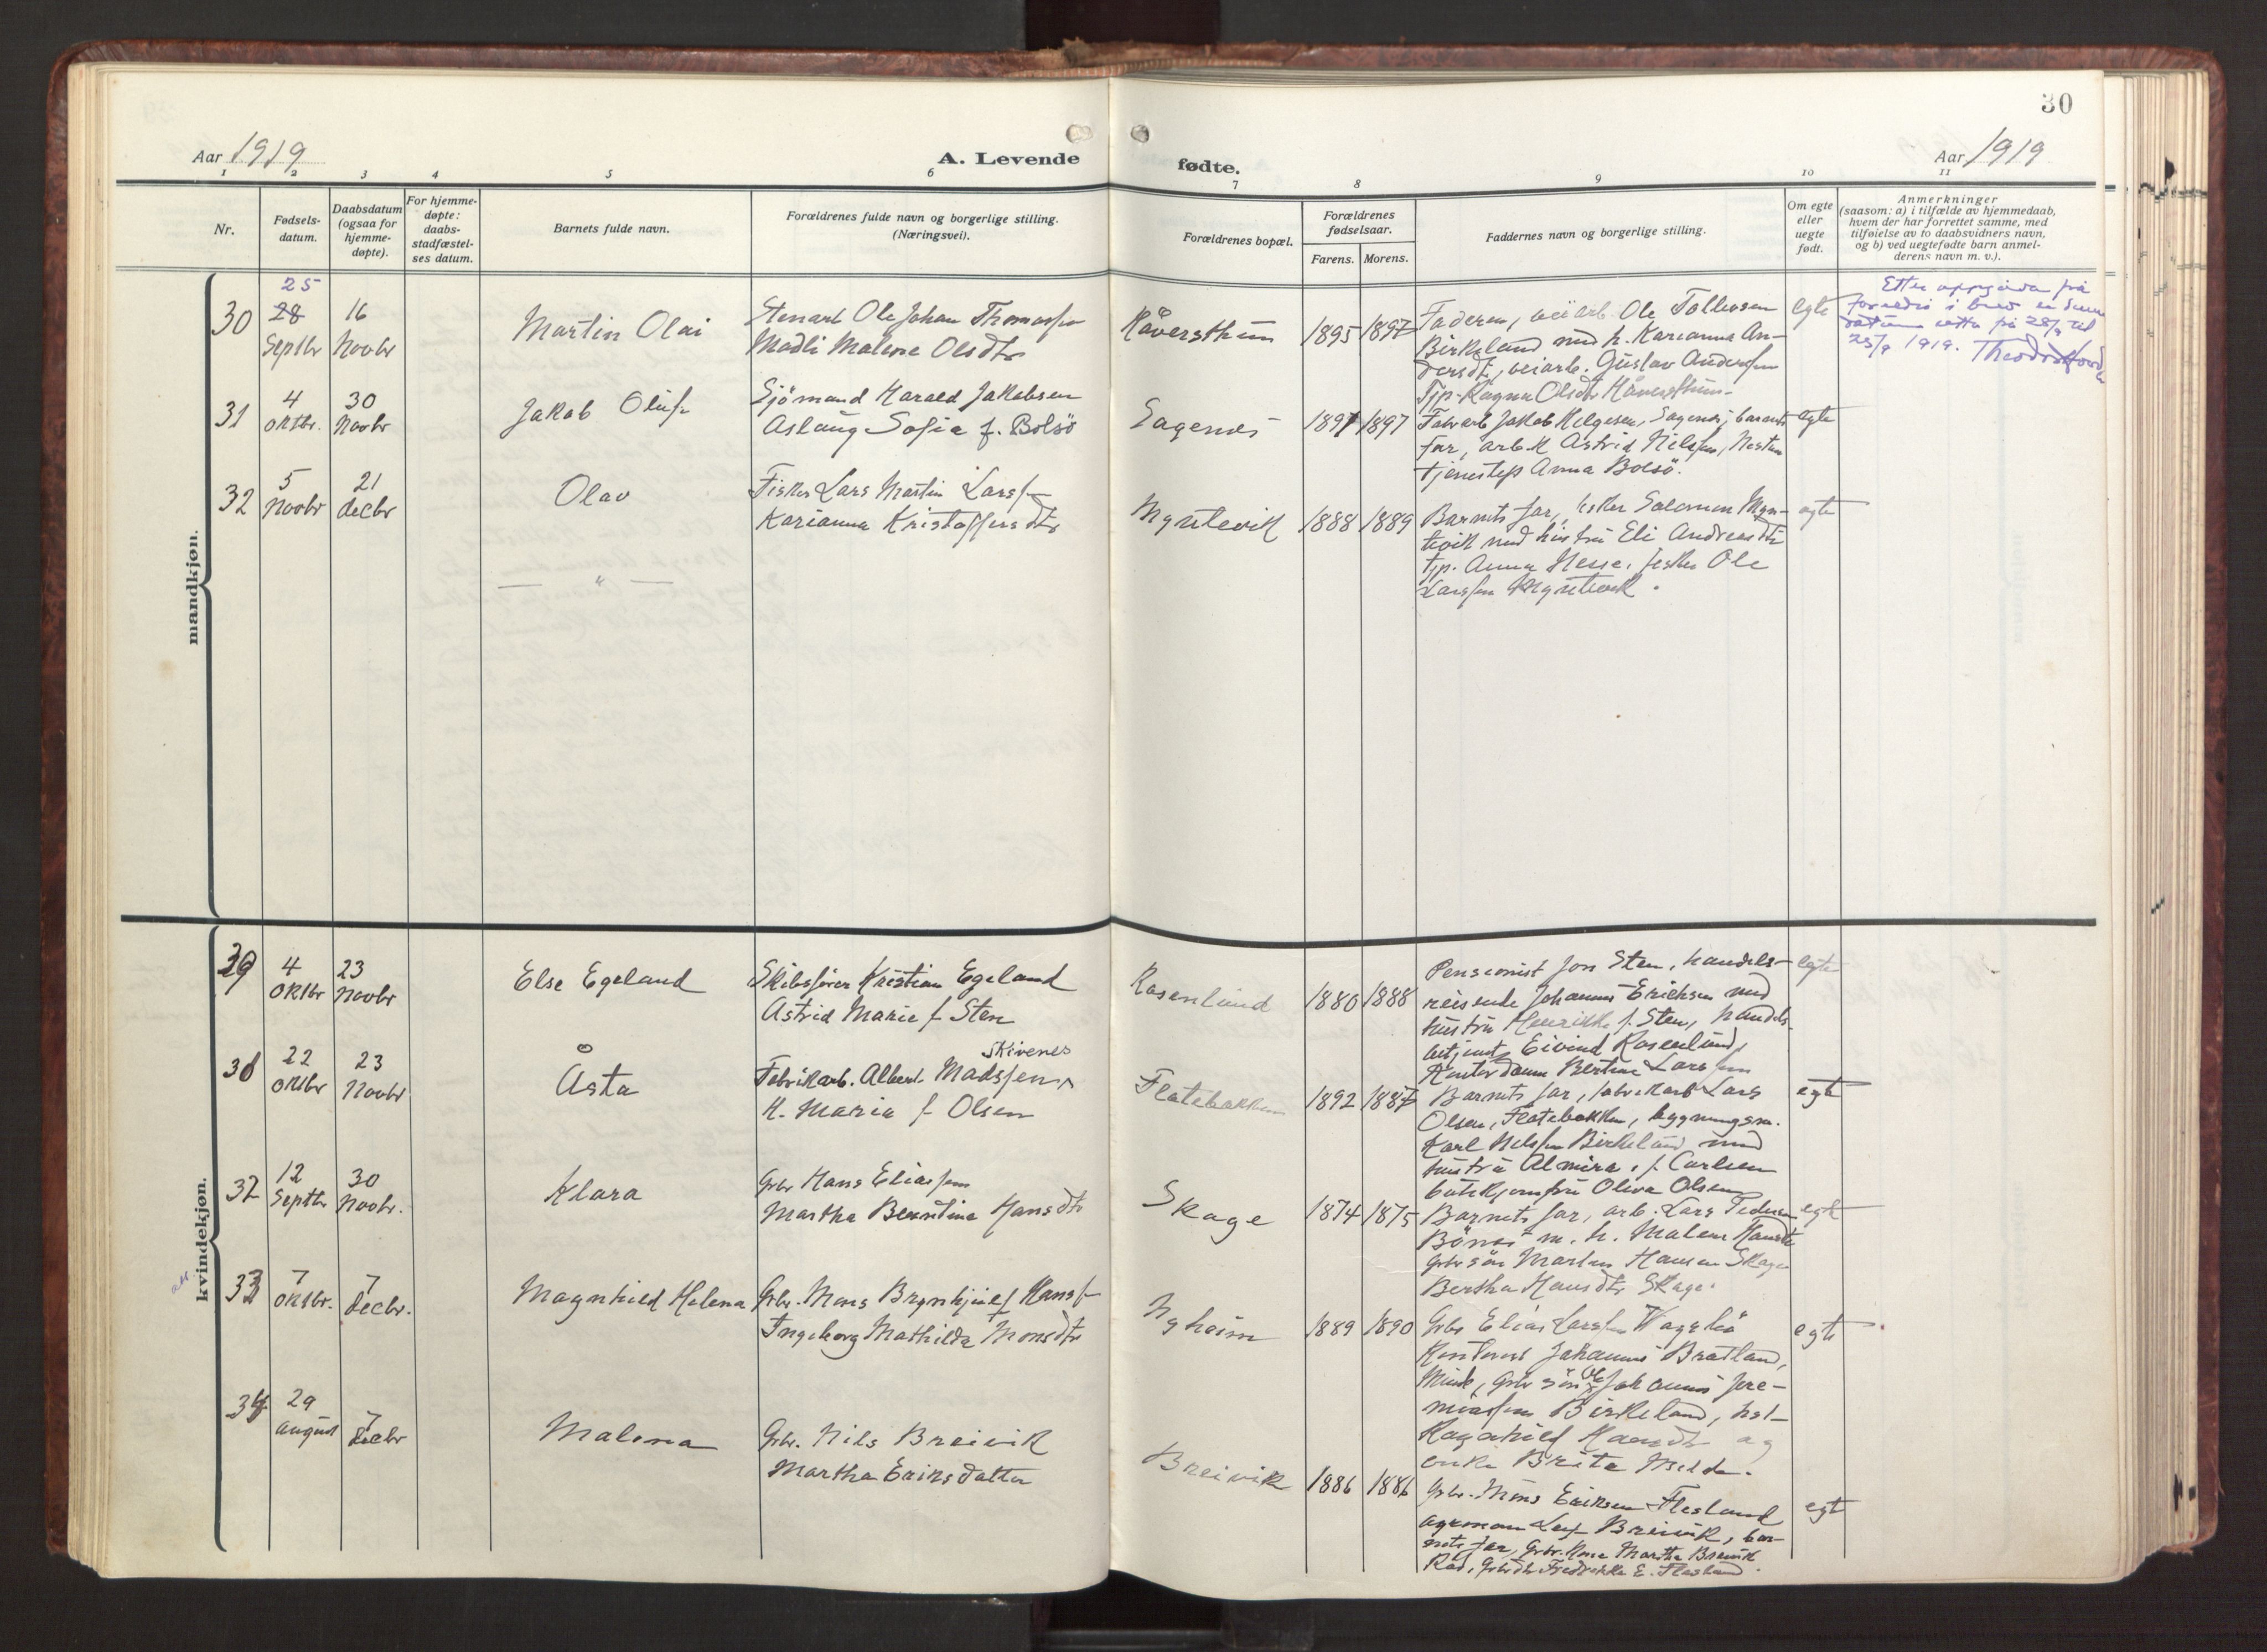 30
Aar 1919
A. Levende
fødte.
Aar 1919
1 2 3 4 5 6 7 8 9 10 11
Nr.
Fødsels-
datum.
Daabsdatum
(ogsaa for
hjemme-
døpte).
For hjemme-
døpte:
daabs-
stadfæstel-
ses datum.
Barnets fulde navn.
Forældrenes fulde navn og borgerlige stilling.
(Næringsvei).
Forældrenes bopæl.
Forældrenes
fødselsaar.
Farens. Morens.
Faddernes navn og borgerlige stilling.
Om egte
eller
uegte
født.
Anmerkninger
(saasom: a) i tilfælde av hjemmedaab,
hvem der har forrettet samme, med
tilføielse av to daabsvidners navn,
og b) ved uegtefødte barn anmel-
derens navn m. v.).
mandkjøn.
30
25
28
Septbr
16
Novbr
Martin Olai
Stenarb Ole Johan Thomassen
Madli Malene Olsdtr
Håversthun
1895 1897
Faderen, veiarb. Ole Tollevsen
Birkeland med h. Karianna An-
dersdtr, veiarb. Gustav Andersen
Tjp. Ragna Olsdtr Håversthun
egte
Etter uppgivar frå
foreldre i brev er
datum retta på 28/9 til
25/9 1919.
31
4
Oktbr.
30
Novbr
Jakob Oluf
Sjömand Harald Jakobsen
Aslaug Sofie f. Bolsö
Sagenes
1897 1897
Fabrarb Jakob Helgesen, Sagenes, barnets
far, arb.k Astrid Nilssen, Nestun
tjenestep Anna Bolsö.
egte
32
5
Novbr
21
decbr
Olav
Fisker Lars Martin Larss
Karianna Kristoffersdtr
Myrtevik
1888 1889
Barnets far, fisker Salomon Myr-
tevik med hustru Eli Andreasdtr
tjp. Anna Hesse, fisker Ole
Larssen Myrtevik.
egte
— " —
kvindekjøn.
29
4
Oktbr
23
Novbr
Else Egeland
Skibsfører Kristian Egeland
Astrid Marie f Sten
Rosenlund
1880 1888
Pensionist Jon Sten, handels-
reisende Johannes Erichsen med
hustru Henrikke f. Sten, handels-
betjent Eivind Rosenlund,
Kontordame Bertine Larssen
egte
30
22
Oktbr
23
Novbr
Åsta
Skivenes
Fabrikarb. Albert Madssen
H. Maria f Olsen
Flatebakken
1892 1887
Barnets far, fabrikarb Lars
Olsen, Flatebakken, bygningsm.
Karl Nilssen Birkeland med
hustru Almira, f. Carlsen
butikjomfru Oliva Olsen
egte
32
12
Septbr
30
Novbr.
Klara
Grbr Hans Eliassen
Martha Berntine Hansdtr
Skage
1874 1875
Barnets far, arb. Lars Pedersen
Bönes m. h. Malene Hansdtr
Grbr sön Martin Hansen Skage
Bertha Hansdtr Skage.
egte
33
7
Oktbr.
7
Decbr.
Magnhild Helena
Grbr. Mons Brynhjulf Hans
Ingeborg Mathilda Monsdtr
Nyheim
1889 1890
Grbr Elias Larssen
Johannes Bratland,
Minde, Grbr sön Ole Johannes Jere-
miassen Birkeland,
Ragnhild Hansdtr og
enke Brita Milde.
egte
34
29
August
7
Decbr
Malena
Grbr. Nils Breivik
Martha Eriksdatter
Breivik
1886 1886
Grbr. Mons Eriksen Flesland
Breivik, bar-
nets far, Grbr. kone Martha Breivik
Råd, Grbrdtr Fredrikke E. Flesland.
egte